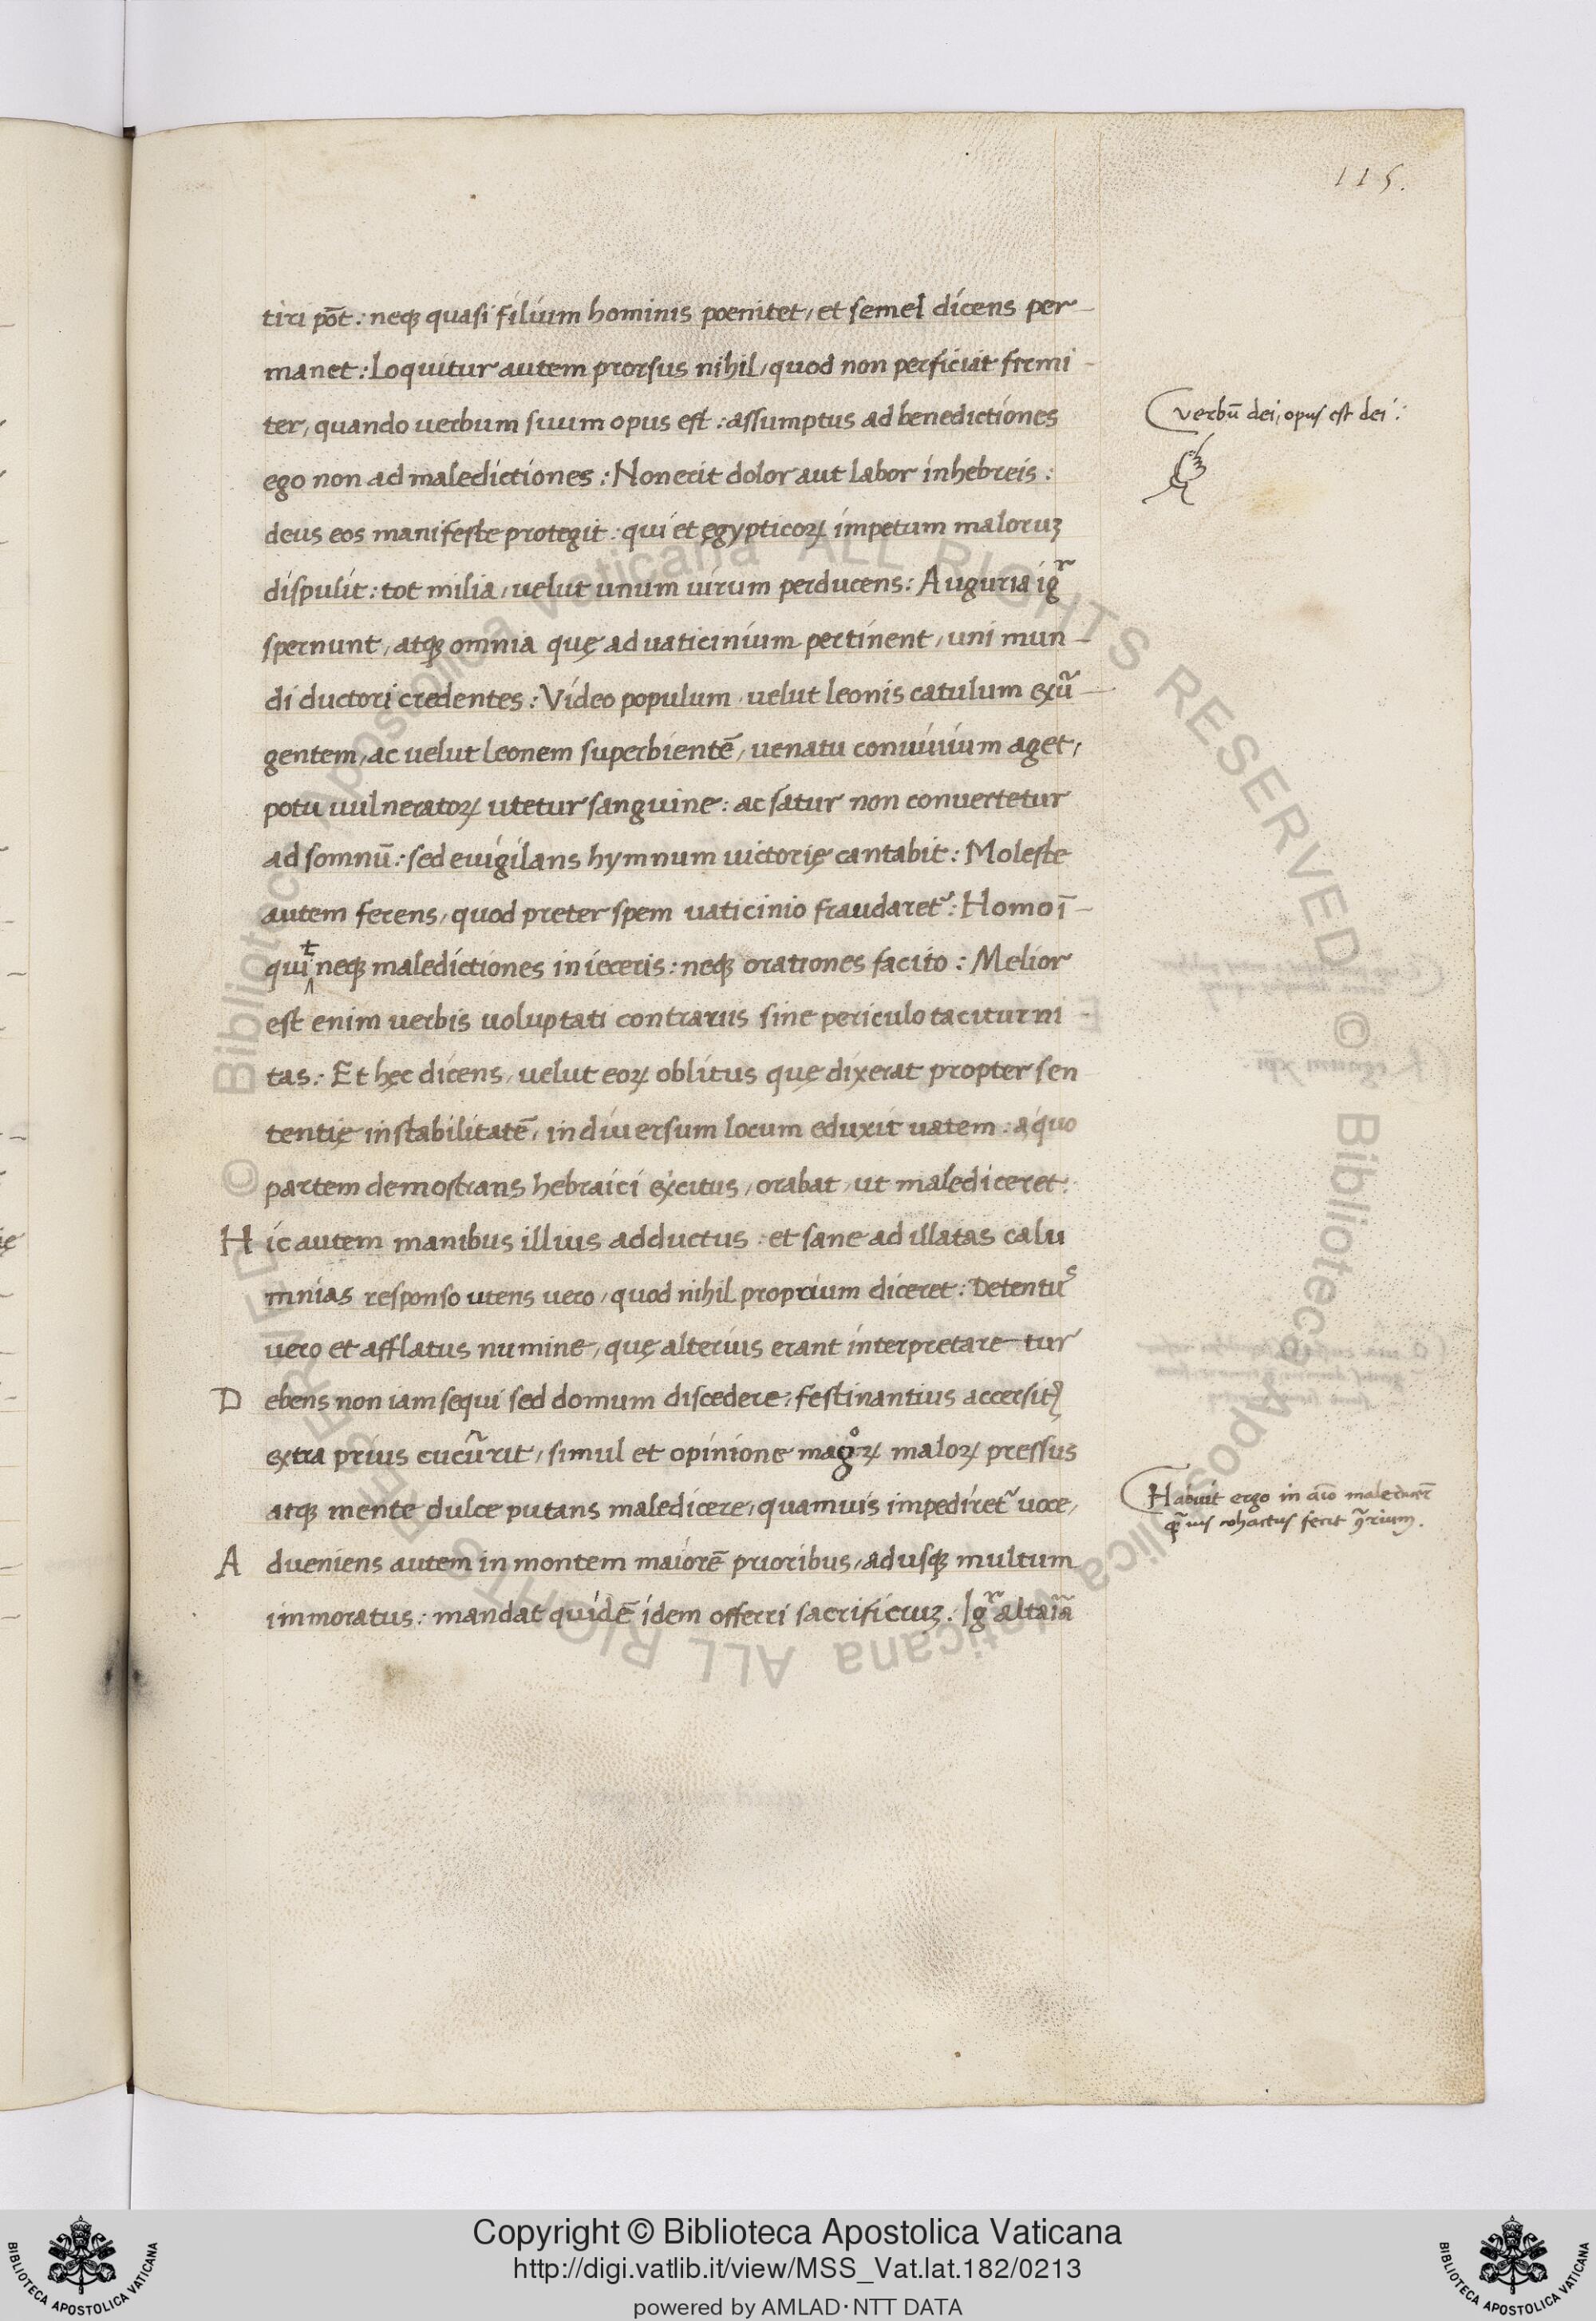 115.
tiri põt: neqꝫ quasi filium hominis poenitet, et semel dicens per-
manet: Loquitur autem prorsus nihil, quod non perficiat firmi-
ter, quando uerbum suum opus est: assumptus ad benedictiones
ego non ad maledictiones: Non erit dolor aut labor in hebreis:
deus eos manifeste protegit: qui et ęgypticoꝝ impetum maloruꝫ
dispulit: tot milia, uelut unum uirum perducens: Auguria igr̃
spernunt, atqꝫ omnia quę ad uaticinium pertinent, uni mun-
di ductori credentes: Video populum, uelut leonis catulum exũ-
gentem, ac uelut leonem superbientẽ, uenatu conuiuium aget,
potu uulneratoꝝ utetur sanguine: ac satur non conuertetur
ad somnũ: sed euigilans hymnum uictorię cantabit: Moleste
autem ferens, quod preter spem uaticinio fraudaret᷑: Homo ĩ-
quit neqꝫ maledictiones inieceris: neqꝫ orationes facito: Melior
est enim uerbis uoluptati contrariis sine periculo taciturni-
tas: Et hęc dicens, uelut eoꝝ oblitus quę dixerat propter sen
tentię instabilitatẽ, in diuersum locum eduxit uatem: a quo
partem demostrans hebraici exćitus, orabat, ut malediceret:
Hic autem manibus illius adductus: et sane ad illatas calu
mnias responso utens uero, quod nihil proprium diceret: Detentus
uero et afflatus numine, quę alterius erant interpretare tur
Debens non iam sequi sed domum discedere: festinantius accersitꝰ
extra prius cucũrit, simul et opinione magoꝝ maloꝝ pressus
atqꝫ mente dulce putans maledicere, quamuis impediret᷑ uoce,
Adueniens autem in montem maiorẽ prioribus, adusqꝫ multum
immoratus: mandat quidẽ idem offerri sacrificiuꝫ. Igr̃ altaria
verbũ dei, opus est dei:
Habuit ergo in aĩo maledicer̃
ꝗ̃uis
Copyright © Biblioteca Apostolica Vaticana
http://digi.vatlib.it/view/MSS_Vat.lat.182/0213
powered by AMLAD·NTT DATA
BIBLIOTECA APOSTOLICA VATICANA
BIBLIOTECA APOSTOLICA VATICANA
© Biblioteca Apostolica Vaticana ALL RIGHTS RESERVED © Biblioteca Apostolica Vaticana ALL RIGHTS RESERVED